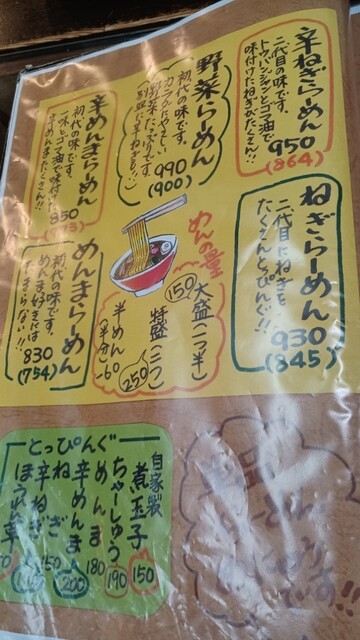 辛ねぎらーめん
二代目の味です。
トウバンジャンとゴマ油で
味付けたねぎがたくさん!!
950
(864)
野菜らーめん
初代の味です。
カラダにやさしい
野菜たっぷりです。
990
(900)
辛めんまらーめん
初代の味です。
一味とゴマ油で味付け
辛めんまがたくさん!!
850
(773)
ねぎらーめん
二代目にねぎを
たくさんとっぴんぐ!!
930
(845)
めんの量
大盛(一つ半)
150
特盛(二つ)
250
半めん
(半分)
-60
めんまらーめん
初代の味です。
めんま好きには
たまらない!!
830
(754)
とっぴんぐ
自家製
煮玉子
150
ちゃーしゅう
190
めんま
180
辛めんま
200
ねぎ
150
辛ねぎ
ほうれん草
です!!